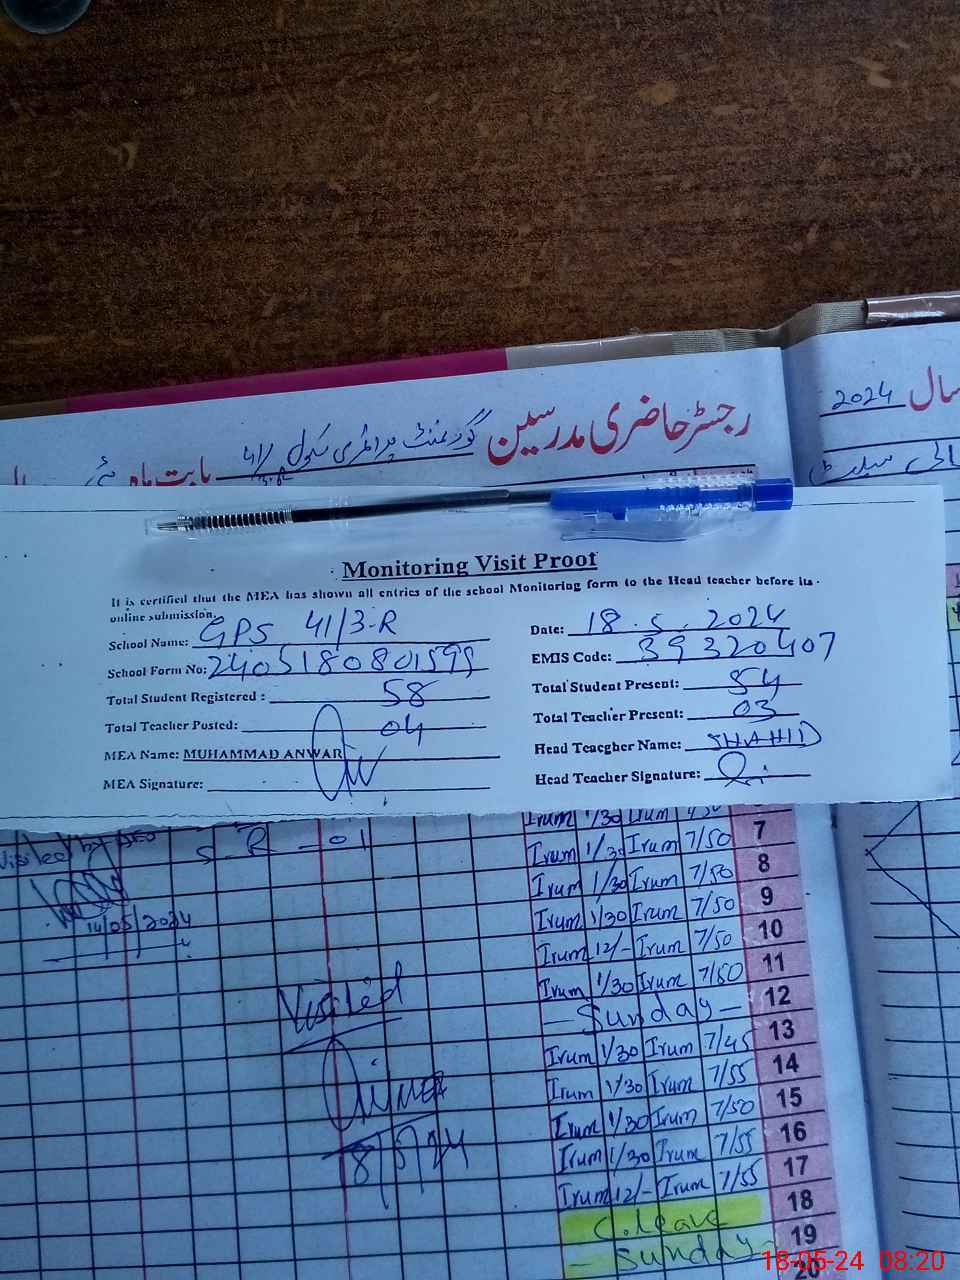 سال 2024
رجسٹر حاضری مدرسین گورنمنٹ پرائمری سکول 41/3-R بابت ماہ مئی
Monitoring Visit Proof
It is certified that the MEA has shown all entries of the school Monitoring form to the Head teacher before its
online submission.
School Name: GPS 41/3-R Date: 18.5.2024
School Form No: EMIS Code: 39320407
Total Student Registered : 58 Total Student Present: 54
Total Teacher Posted: 04 Total Teacher Present: 03
MEA Name: MUHAMMAD ANWAR Head Teacgher Name: SHAHID
MEA Signature: Head Teacher Signature:
Irum 1/30 Irum
S-R-01 Irum 1/30 Irum 7/50 7
Irum 1/30 Irum 7/50 8
14/05/2024 Irum 1/30 Irum 7/50 9
Irum 12/- Irum 7/50 10
Irum 1/30 Irum 7/50 11
Visited - Sunday - 12
Irum 1/30 Irum 7/45 13
Irum 1/30 Irum 7/55 14
MEA Irum 1/30 Irum 7/50 15
18/5/24 Irum 1/30 Irum 7/55 16
Irum 12/- Irum 7/55 17
C.leave 18
- Sunday - 19
20
18-05-24 08:20